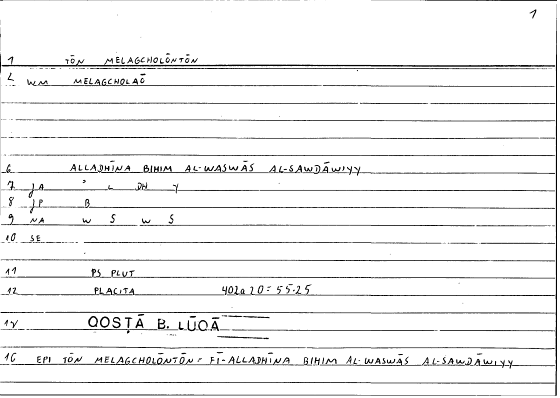 1
1 TŌN MELAGCHOLŌNTŌN
WM MELAGCHOLAŌ
6 ALLADHĪNA BIHIM AL-WASWĀS AL-SAWDĀWIYY
7 JA ʾ L DH Y
8 JP B
9 NA W S W S
10 SE
11 PS PLUT
12 PLACITA 402a20 = 55-25
14 QOSṬĀ B. LŪQĀ
16 EPI TŌN MELAGCHOLŌNTŌN = FĪ-ALLADHĪNA BIHIM AL-WASWĀS AL-SAWDĀWIYY